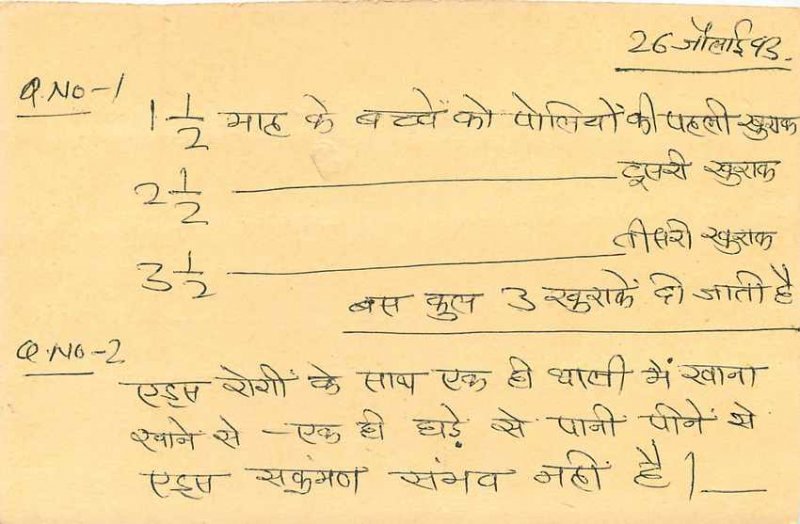 26 जौलाई 93.
Q.NO-1
1 1/2 माह के बच्चें को पोलियों की पहली खुराक
2 1/2 ——— दूसरी खुराक
3 1/2 ——— तीसरी खुराक
बस कुल 3 खुराकें दी जाती है
Q.NO-2
एड्स रोगी के साथ एक ही थाली में खाना
खाने से - एक ही घड़े से पानी पीने से
एड्स सक्रंमण संभव नहीं है।—